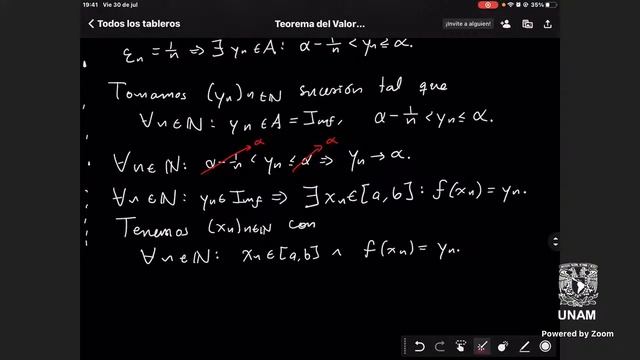 19:41 Vie 30 de jul
35%
Todos los tableros
Teorema del Valor...
¡Invite a alguien!
εₙ = 1/n ⇒ ∃ yₙ ∈ A : α − 1/n < yₙ ≤ α.
Tomamos (yₙ)ₙ∈ℕ sucesión tal que
∀ n ∈ ℕ : yₙ ∈ A = Imf, α − 1/n < yₙ ≤ α.
α α
∀ n ∈ ℕ : α − 1/n < yₙ ≤ α ⇒ yₙ → α.
∀ n ∈ ℕ : yₙ ∈ Imf ⇒ ∃ xₙ ∈ [a, b] : f(xₙ) = yₙ.
Tenemos (xₙ)ₙ∈ℕ con
∀ n ∈ ℕ : xₙ ∈ [a, b] ∧ f(xₙ) = yₙ.
UNAM
Powered by Zoom